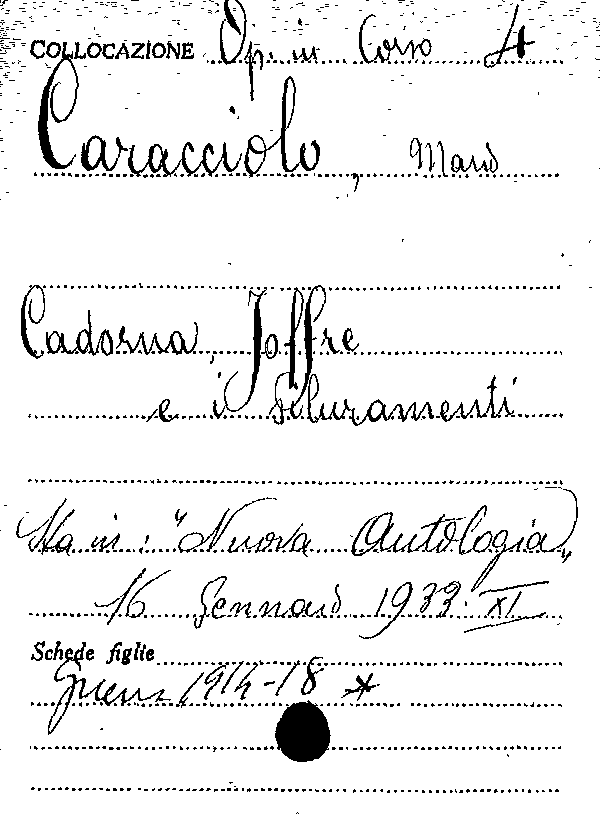 COLLOCAZIONE Op. in Corso 4
Caracciolo, Mario
Cadorna, Joffre
e i siluramenti
Sta in: "Nuova Antologia"
16 Gennaio 1933. XI
Schede figlie
Guerra 1914-18 *